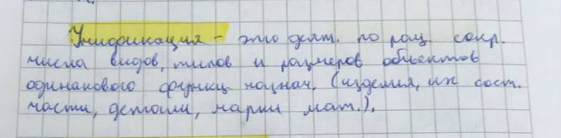 Унификация - это деят. по рац. сокр.
числа видов, типов и размеров объектов
одинакового функц. назнач. (изделия, их сост.
части, детали, марки мат.).